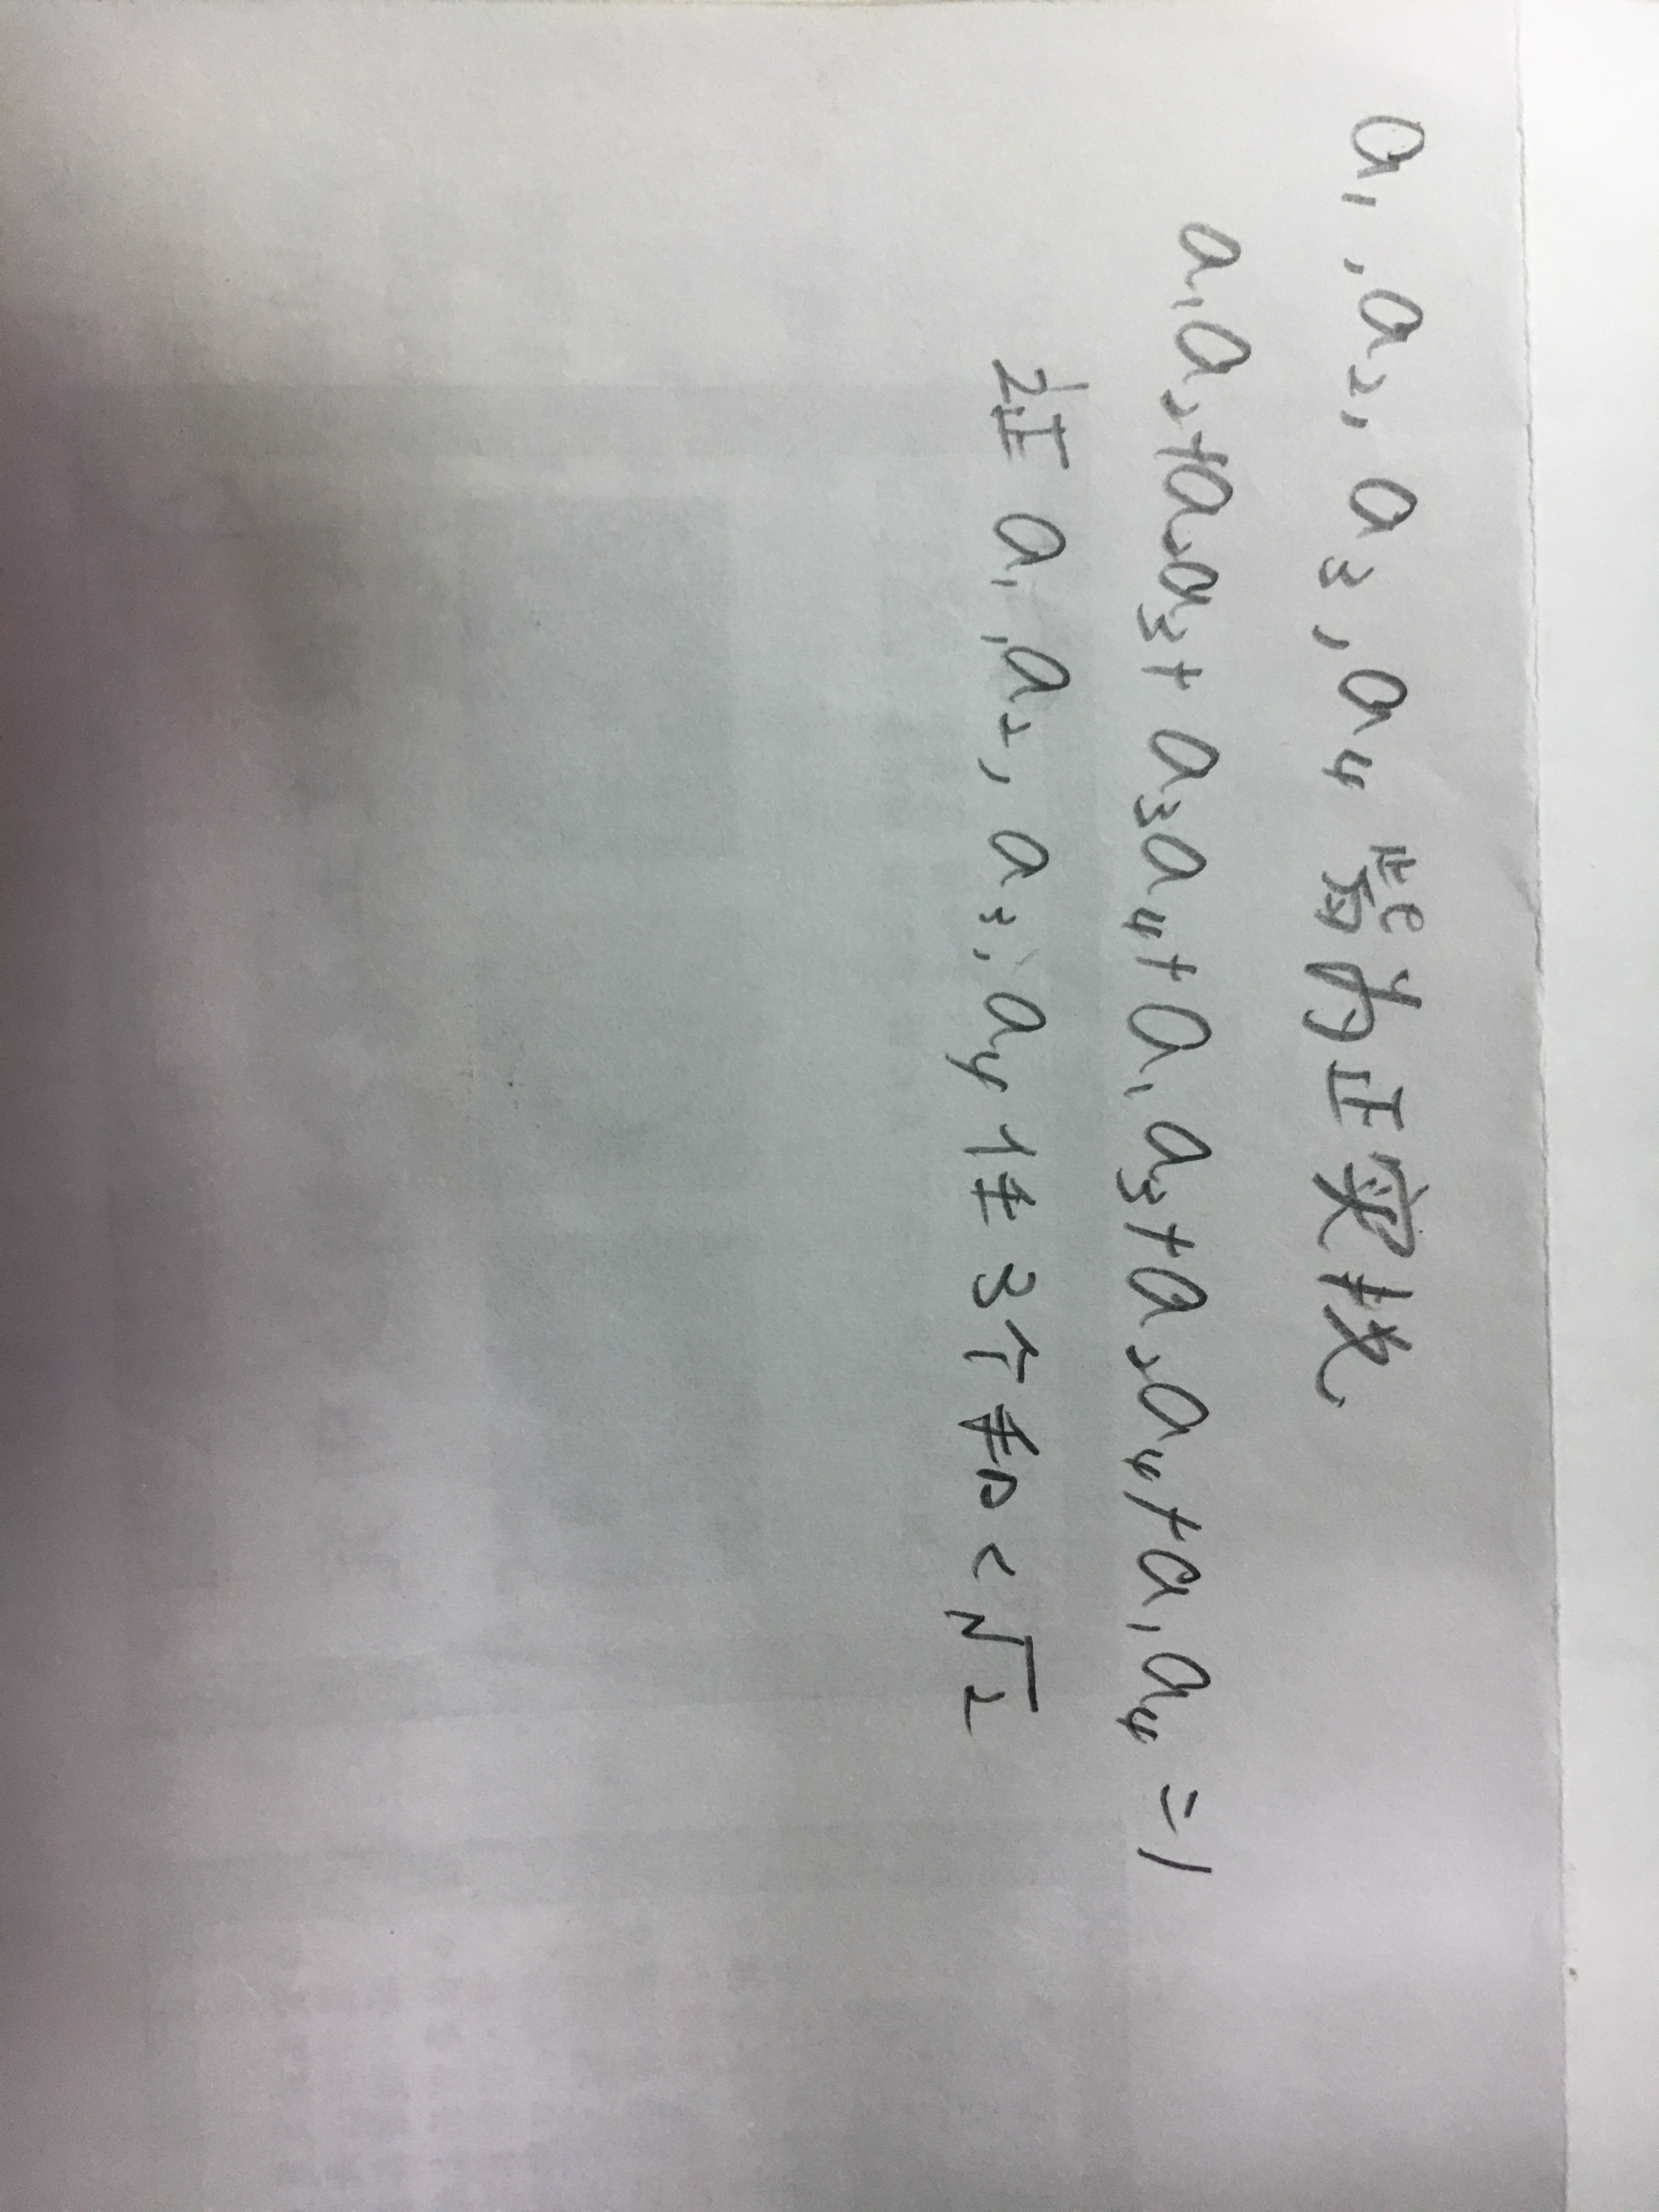 a₁,a₂,a₃,a₄皆为正实找
a₁a₂+a₂a₃+a₃a₄+a₁a₃+a₂a₄+a₁a₄=1
证a₁,a₂,a₃,a₄任3个和<√2